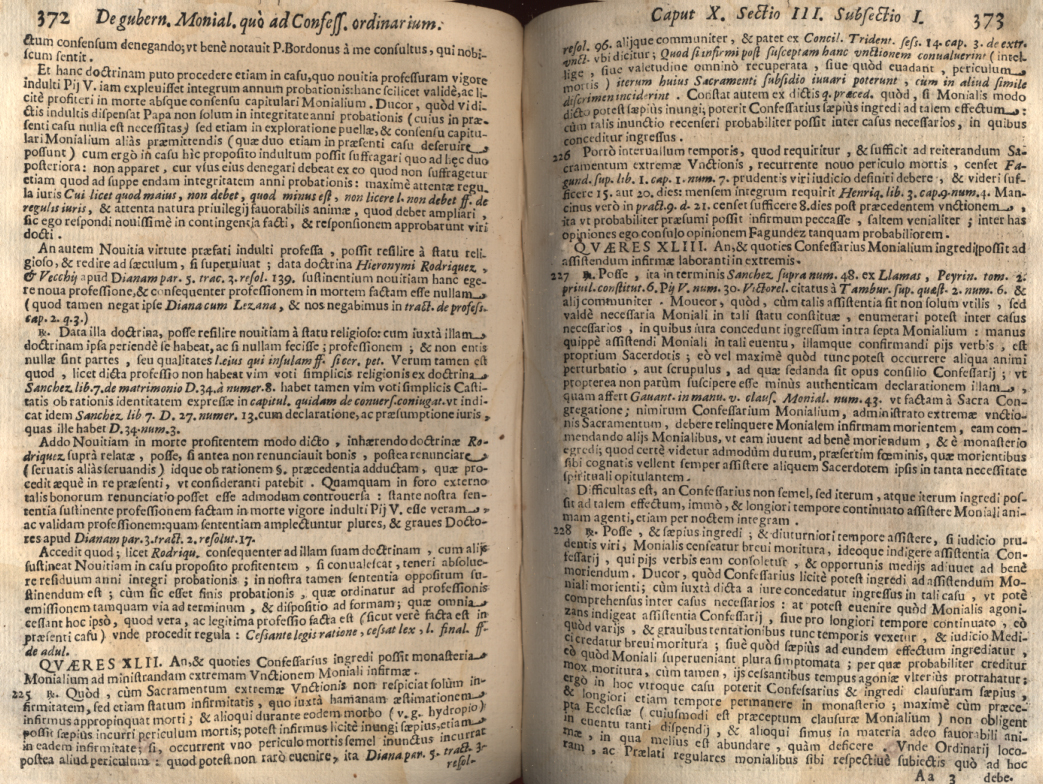 372 De gubern. Monial. quò ad Confess. ordinarium.
ctum consensum denegando; vt benè notauit P. Bordonus à me consultus, qui nobi-
scum sentit.
Et hanc doctrinam puto procedere etiam in casu, quo nouitia professuram vigore
indulti Pij V. iam expleuisset integrum annum probationis: hanc scilicet validè, ac li-
citè profiteri in morte absque consensu capitulari Monialium. Ducor, quòd vi di-
ctis indultis dispensat Papa non solum in integritate anni probationis (cuius in præ-
senti casu nulla est necessitas) sed etiam in exploratione puellæ, & consensu capitu-
lari Monialium aliàs præmittendis (quæ duo etiam in præsenti casu deseruire
possunt) cum ergò in casu hic proposito indultum possit suffragari quo ad hęc duo
posteriora: non apparet, cur vsus eius denegari debeat ex eo quod non suffragetur
etiam quod ad suppe endam integritatem anni probationis: maximè attentæ regu-
la iuris Cui licet quod maius, non debet, quod minus est, non licere l. non debet ff. de
regulis iuris, & attenta natura priuilegij fauorabilis animæ, quod debet ampliari,
sic ego respondi nouissimè in contingentia facti, & responsionem approbarunt viri
docti.
An autem Nouitia virtute præfati indulti professa, possit resilire à statu reli-
gioso, & redire ad sæculum, si superuiuat; data doctrina Hieronymi Rodriquez,
& Vecchij apud Dianam par. 5. trac. 3. resol. 139. sustinentium nouitiam hanc ege-
re noua professione, & consequenter professionem in mortem factam esse nullam
(quod tamen negat ipse Diana cum Lezana, & nos negabimus in tract. de profess.
cap. 2. q. 3.)
℟. Data illa doctrina, posse resilire nouitiam à statu religioso: cum iuxtà illam
doctrinam ipsa periendè se habeat, ac si nullam fecisse; professionem; & non entis
nullæ sint partes, seu qualitates l. eius qui insulam ff. si cer. pet. Verum tamen est
quod, licet dicta professio non habeat vim voti simplicis religionis ex doctrina
Sanchez lib. 7. de matrimonio D. 34. à numer. 8. habet tamen vim voti simplicis Casti-
tatis ob rationis identitatem expressæ in capitul. quidam de conuers. coniugat. vt indi-
cat idem Sanchez lib 7. D. 27. numer. 13. cum declaratione, ac præsumptione iuris,
quas ille habet D. 34. num. 3.
Addo Nouitiam in morte profitentem modo dicto, inhærendo doctrinæ Ro-
driquez suprà relatæ, posse, si antea non renunciauit bonis, postea renunciare
(seruatis aliàs seruandis) idque ob rationem §. præcedentia adductam, quæ pro-
cedit æquè in re præsenti, vt consideranti patebit. Quamquam in foro externo
talis bonorum renunciatio posset esse admodum controuersa: stante nostra sen-
tentia sustinente professionem factam in morte vigore indulti Pij V. esse veram
ac validam professionem: quam sententiam amplectuntur plures, & graues Docto-
res apud Dianam par. 3. tract. 2. resolut. 17.
Accedit quod; licet Rodriqu. consequenter ad illam suam doctrinam, cum alijs
sustineat Nouitiam in casu proposito profitentem, si conualescat, teneri absolue-
re residuum anni integri probationis; in nostra tamen sententia oppositum su-
stinendum est; cùm sic esset finis probationis, quæ ordinatur ad professionis
emissionem tamquam via ad terminum, & dispositio ad formam; quæ omnia
cessant hoc ipsò, quod vera, ac legitima professio facta est (sicut verè facta est in
præsenti casu) vnde procedit regula: Cessante legis ratione, cessat lex, l. final. ff.
de adul.
QVÆRES XLII. An, & quoties Confessarius ingredi possit monasteria
Monialium ad ministrandam extremam Vnctionem Moniali infirmæ.
225 ℟. Quòd, cùm Sacramentum extremæ Vnctionis non respiciat solùm in-
firmitatem, sed etiam statum infirmitatis, quo iuxtà humanam æstimationem
infirmus appropinquat morti; & alioqui durante eodem morbo (v. g. hydropio)
possit sæpius incurri periculum mortis; potest infirmus licitè inungi sæpius, etiam
in eadem infirmitate; si, occurrent vno periculo mortis semel inunctus incurrat
postea aliud periculum: quod potest non rarò euenire, ita Diana par. 5. tract. 3.
resol-
Caput X. Sectio III. Subsectio I. 373
resol. 96. alijque communiter, & patet ex Concil. Trident. sess. 14. cap. 3. de extr.
vnct. vbi dicitur; Quod si infirmi post susceptam hanc vnctionem conualuerint (intel-
lige, siue valetudine omninò recuperata, siue quod euadant, periculum
mortis) iterum huius Sacramenti subsidio iuuari poterunt, cum in aliud simile
discrimen inciderint. Constat autem ex dictis q. præced. quòd, si Monialis modo
dicto potest sæpiùs inungi; poterit Confessarius sæpiùs ingredi ad talem effectum:
cùm talis inunctio recenseri probabiliter possit inter casus necessarios, in quibus
conceditur ingressus.
226 Porrò interuallum temporis, quod requiritur, & sufficit ad reiterandum Sa-
cramentum extremæ Vnctionis, recurrente nouo periculo mortis, censet Fa-
gund. sup. lib. 1. cap. 1. num. 7. prudentis viri iudicio definiri debere, & videri suf-
ficere 15. aut 20. dies: mensem integrum requirit Henriq. lib. 3. cap. 9. num. 4. Man-
cinus verò in pract. 9. d. 21. censet sufficere 8. dies post præcedentem vnctionem,
ita vt probabiliter præsumi possit infirmum peccasse, saltem venialiter; inter has
opiniones ego consulo opinionem Fagundez tanquam probabiliorem.
QVÆRES XLIII. An, & quoties Confessarius Monialium ingredi possit ad
assistendum infirmæ laboranti in extremis.
227 ℟. Posse, ita in terminis Sanchez supra num. 48. ex Llamas, Peyrin. tom. 2.
priuil. constitut. 6. Pij V. num. 30. Victorel. citatus à Tambur. sup. quæst. 2. num. 6. &
alij communiter. Moueor, quòd, cùm talis assistentia sit non solum vtilis, sed
valdè necessaria Moniali in tali statu constitutæ, enumerari potest inter casus
necessarios, in quibus iura concedunt ingressum intra septa Monialium: manus
quippè assistendi Moniali in tali euentu, illamque confirmandi pijs verbis, est
proprium Sacerdotis; eò vel maximè quòd tunc potest occurrere aliqua animi
perturbatio, aut scrupulus, ad quæ sedanda sit opus consilio Confessarij; vt
propterea non parùm suscipere esse minùs authenticam declarationem illam,
quam affert Gauant. in manu. v. claus. Monial. num. 43. vt factam à Sacra Con-
gregatione; nimirum Confessarium Monialium, administrato extremæ vnctio-
nis Sacramentum, debere relinquere Monialem infirmam morientem, eam com-
mendando alijs Monialibus, vt eam iuuent ad benè moriendum, & è monasterio
egredi; quod certè videtur admodùm durum, præsertim fœminis, quæ morientibus
sibi cognatis vellent semper assistere aliquem Sacerdotem ipsis in tanta necessitate
spirituali opitulantem.
Difficultas est, an Confessarius non semel, sed iterum, atque iterum ingredi pos-
sit ad talem effectum, immò, & longiori tempore continuato assistere Moniali ani-
mam agenti, etiam per noctem integram.
228 ℟. Posse, & sæpius ingredi; & diuturniori tempore assistere, si iudicio pru-
dentis viri, Monialis censeatur breui moritura, ideoque indigere assistentia Con-
fessarij, qui pijs verbis eam consoletur, & opportunis medijs adiuuet ad benè
moriendum. Ducor, quòd Confessarius licitè potest ingredi ad assistendum Mo-
niali morienti; cùm iuxtà dicta a iure concedatur ingressus in tali casu, vt potè
comprehensus inter casus necessarios: at potest euenire quòd Monialis agoni-
zans indigeat assistentia Confessarij, siue pro longiori tempore continuato, eò
quòd varijs, & grauibus tentationibus tunc temporis vexetur, & iudicio Medi-
ci credatur breui moritura; siue quòd sæpius ad eundem effectum ingrediatur,
eò quòd Moniali superueniant plura simptomata; per quæ probabiliter creditur
mox moritura, cùm tamen, ijs cessantibus tempus agoniæ vlterius protrahatur:
ergò in hoc vtroque casu poterit Confessarius & ingredi clausuram sæpius,
& longiori etiam tempore permanere in monasterio; maximè cùm præce-
pta Ecclesiæ (cuiusmodi est præceptum clausuræ Monialium) non obligent
in euentu tanti dispendij, & alioqui simus in materia adeo fauorabili ani-
mæ, in qua melius est abundare, quàm deficere. Vnde Ordinarij loco-
rum, ac Prælati regulares monialibus sibi respectiuè subiectis quò ad hoc
Aa 3 debe-